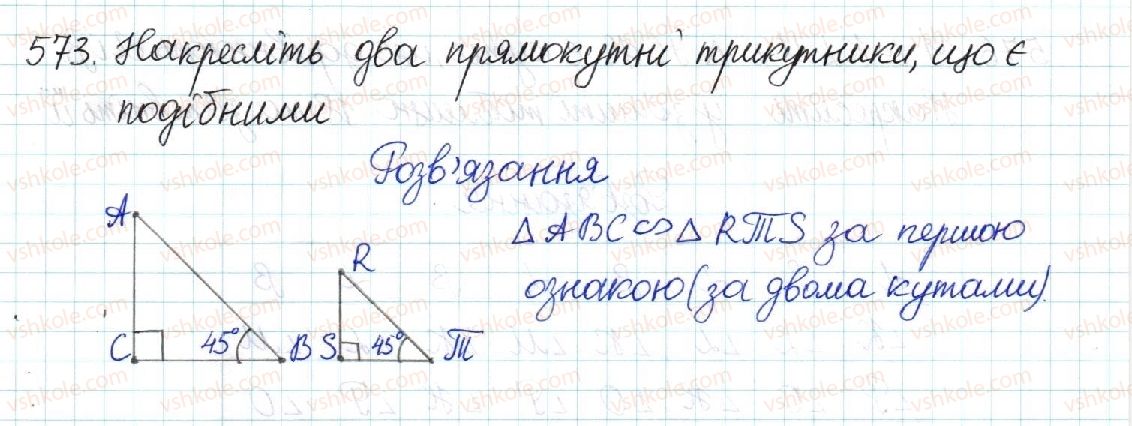 573. Накресліть два прямокутні трикутники, що є
подібними
Розв'язання
△ABC ∾ △RTS за першою
ознакою (за двома кутами).
A
R
C 45° B S 45° T
vshkole.com